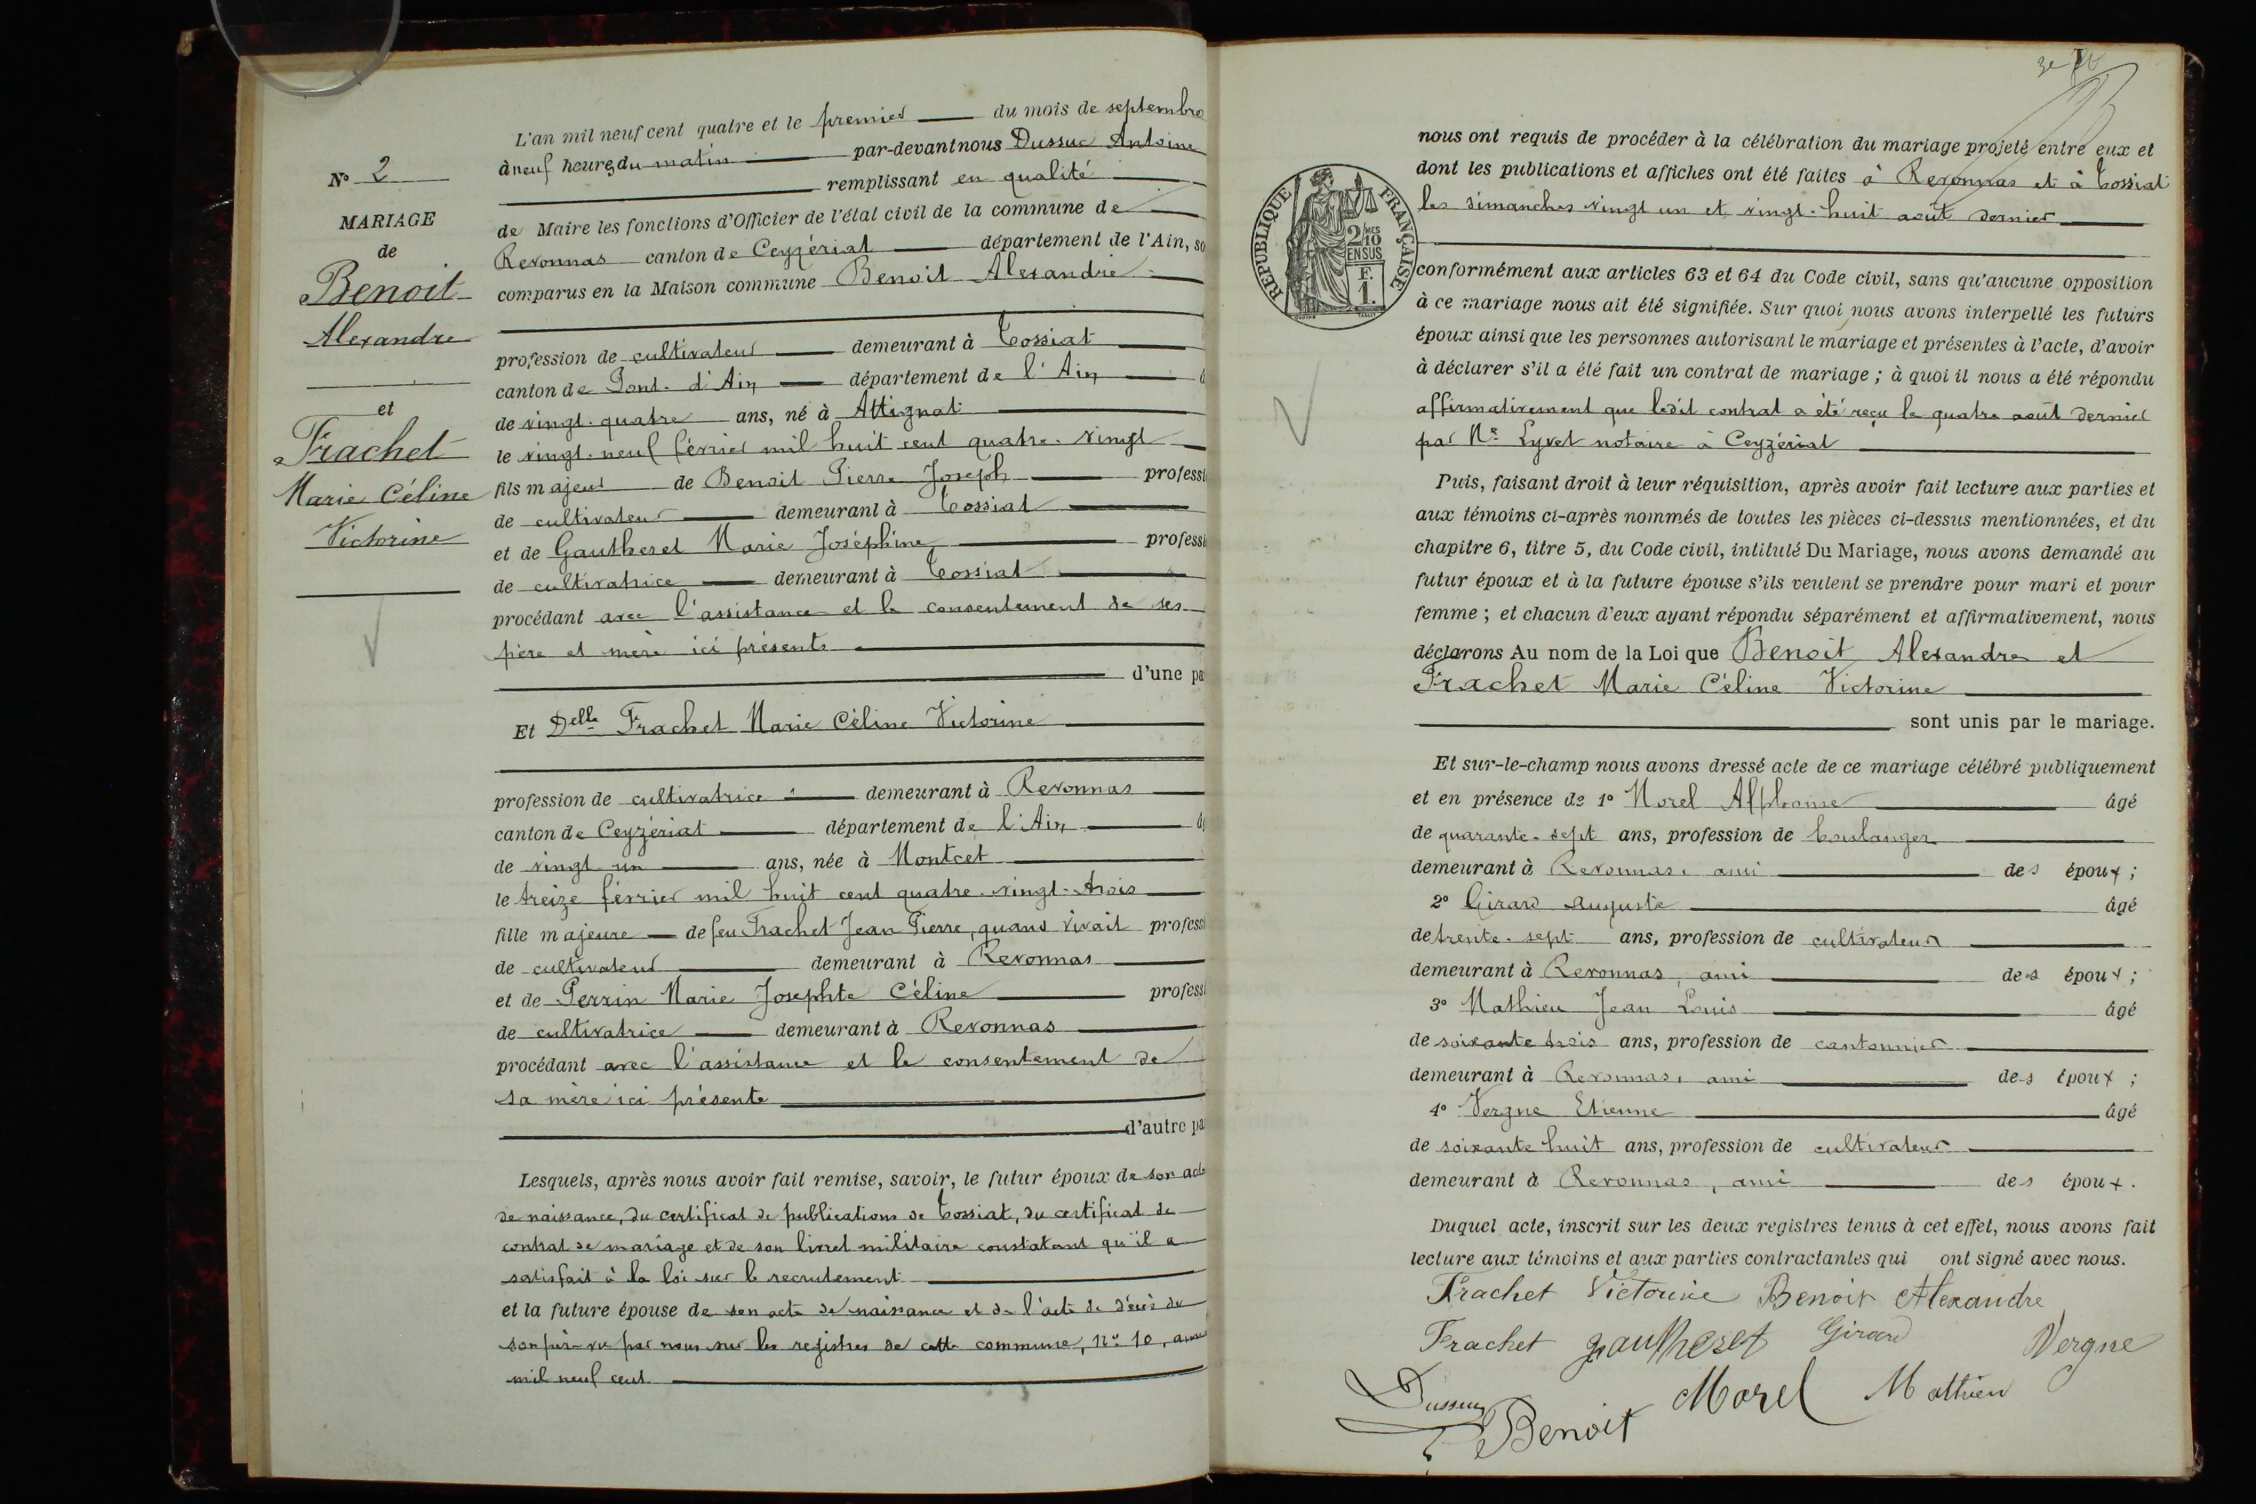 N° 2
MARIAGE
de
Benoit
Alexandre
et
Frachet
Marie Céline
Victorine
L'an mil neuf cent quatre et le premier du mois de septembre
à neuf heures du matin par-devant nous Dussuc Antoine
remplissant en qualité
de Maire les fonctions d'Officier de l'état civil de la commune de
Revonnas canton de Ceyzériat département de l'Ain, so
comparus en la Maison commune Benoit Alexandre
profession de cultivateur demeurant à Tossiat
canton de Pont-d'Ain département de l'Ain
de vingt-quatre ans, né à Attignat
le vingt-neuf février mil huit cent quatre-vingt
fils majeur de Benoit Pierre Joseph professi
de cultivateur demeurant à Tossiat
et de Gautheret Marie Joséphine professi
de cultivatrice demeurant à Tossiat
procédant avec l'assistance et le consentement de ses
père et mère ici présents
d'une pa
Et Delle Frachet Marie Céline Victorine
profession de cultivatrice demeurant à Revonnas
canton de Ceyzériat département de l'Ain
de vingt-un ans, née à Montcet
le treize février mil huit cent quatre-vingt-trois
fille majeure de feu Frachet Jean Pierre, quand vivait professi
de cultivateur demeurant à Revonnas
et de Perrin Marie Josephte Céline professi
de cultivatrice demeurant à Revonnas
procédant avec l'assistance et le consentement de
sa mère ici présente
d'autre pa
Lesquels, après nous avoir fait remise, savoir, le futur époux de son acte
de naissance, du certificat de publications de Tossiat, du certificat de
contrat de mariage et de son livret militaire constatant qu'il a
satisfait à la loi sur le recrutement
et la future épouse de son acte de naissance et de l'acte de décès de
son père vu par nous sur les registres de cette commune, n° 10, année
mil neuf cent
nous ont requis de procéder à la célébration du mariage projeté entre eux et
dont les publications et affiches ont été faites à Revonnas et à Tossiat
les dimanches vingt un et vingt-huit août dernier
RÉPUBLIQUE FRANÇAISE
2/10 MES
EN SUS
F.
1.
conformément aux articles 63 et 64 du Code civil, sans qu'aucune opposition
à ce mariage nous ait été signifiée. Sur quoi nous avons interpellé les futurs
époux ainsi que les personnes autorisant le mariage et présentes à l'acte, d'avoir
à déclarer s'il a été fait un contrat de mariage ; à quoi il nous a été répondu
affirmativement que ledit contrat a été reçu le quatre août dernier
par Me Lyvet notaire à Ceyzériat
Puis, faisant droit à leur réquisition, après avoir fait lecture aux parties et
aux témoins ci-après nommés de toutes les pièces ci-dessus mentionnées, et du
chapitre 6, titre 5, du Code civil, intitulé Du Mariage, nous avons demandé au
futur époux et à la future épouse s'ils veulent se prendre pour mari et pour
femme ; et chacun d'eux ayant répondu séparément et affirmativement, nous
déclarons Au nom de la Loi que Benoit Alexandre et
Frachet Marie Céline Victorine
sont unis par le mariage.
Et sur-le-champ nous avons dressé acte de ce mariage célébré publiquement
et en présence de 1° Morel Alphonse âgé
de quarante-sept ans, profession de boulanger
demeurant à Revonnas, ami des époux ;
2° Girard Auguste âgé
de trente-sept ans, profession de cultivateur
demeurant à Revonnas, ami des époux ;
3° Mathieu Jean Louis âgé
de soixante trois ans, profession de cantonnier
demeurant à Revonnas, ami des époux ;
4° Vergne Etienne âgé
de soixante huit ans, profession de cultivateur
demeurant à Revonnas, ami des époux.
Duquel acte, inscrit sur les deux registres tenus à cet effet, nous avons fait
lecture aux témoins et aux parties contractantes qui ont signé avec nous.
Frachet Victorine Benoit Alexandre
Frachet gautheret Girard Vergne
Dussuc Benoit Morel Mathieu